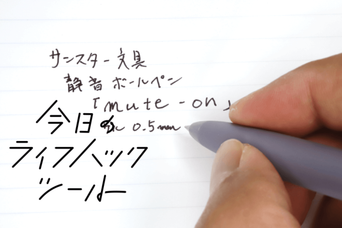 サンスター文具
静音ボールペン
「mute-on」
0.5mm
今日の
ライフハック
ツール